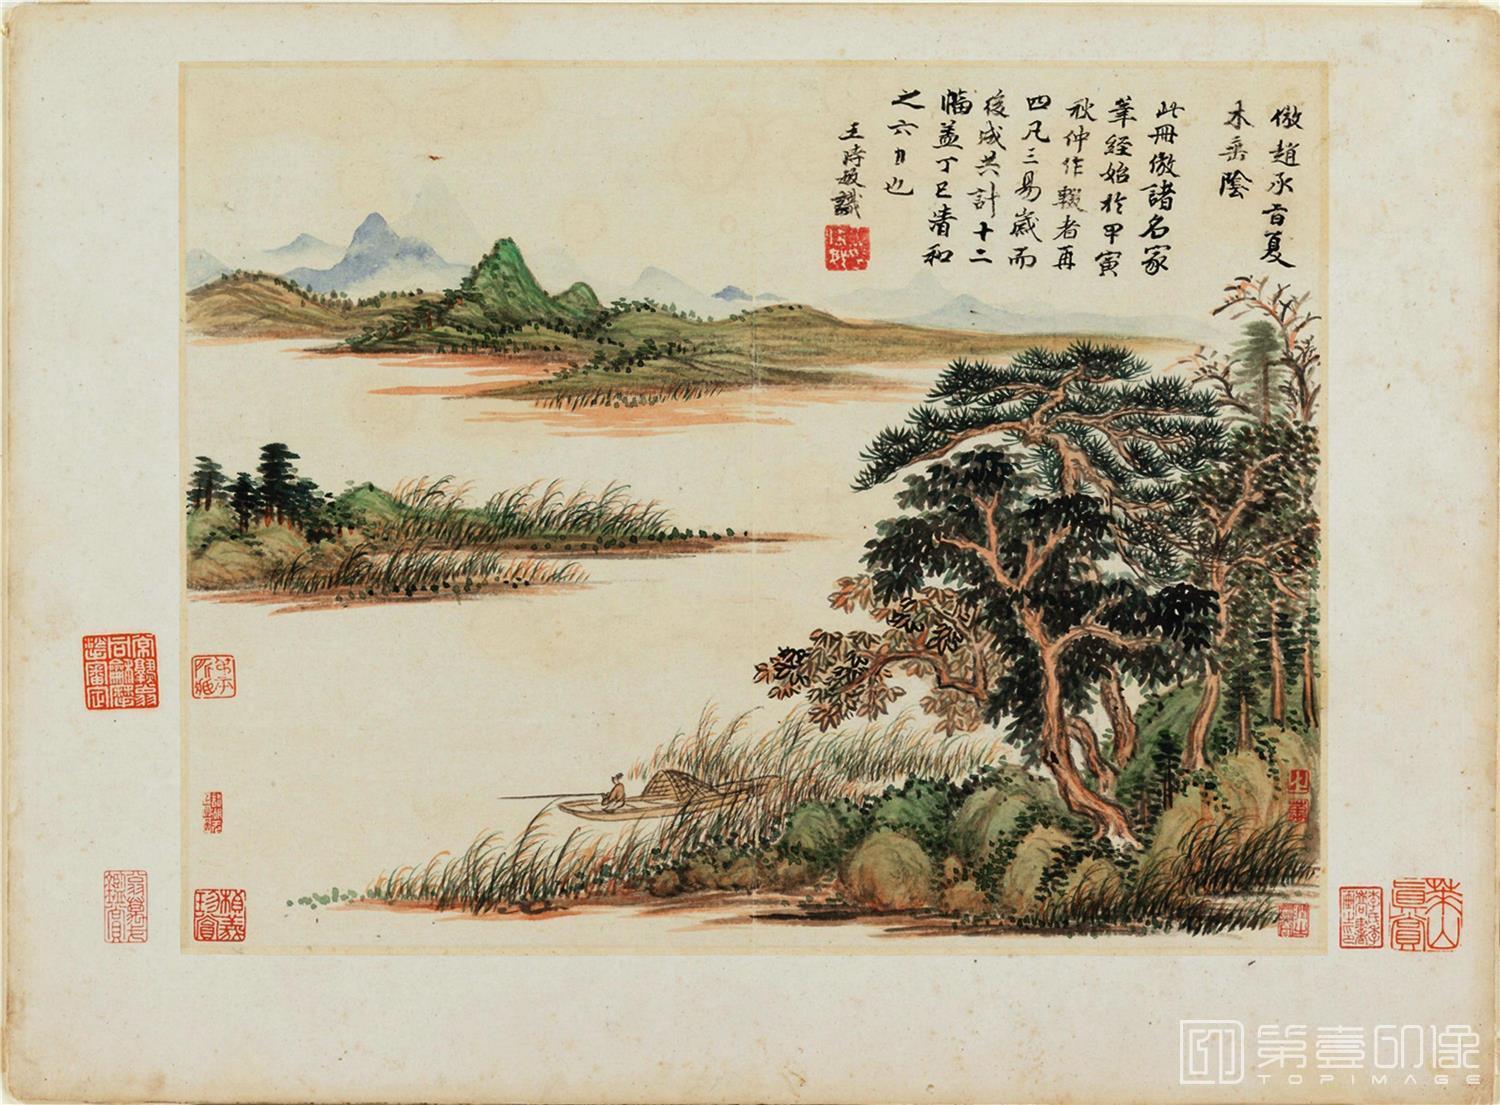 倣趙承旨夏
木垂陰
此冊倣諸名家
筆經始於甲寅
秋仲作輟者再
四凡三易歲而
後成共計十二
幅蓋丁巳清和
之六日也
王時敏識
儀周珍賞
第壹印像
TOPIMAGE